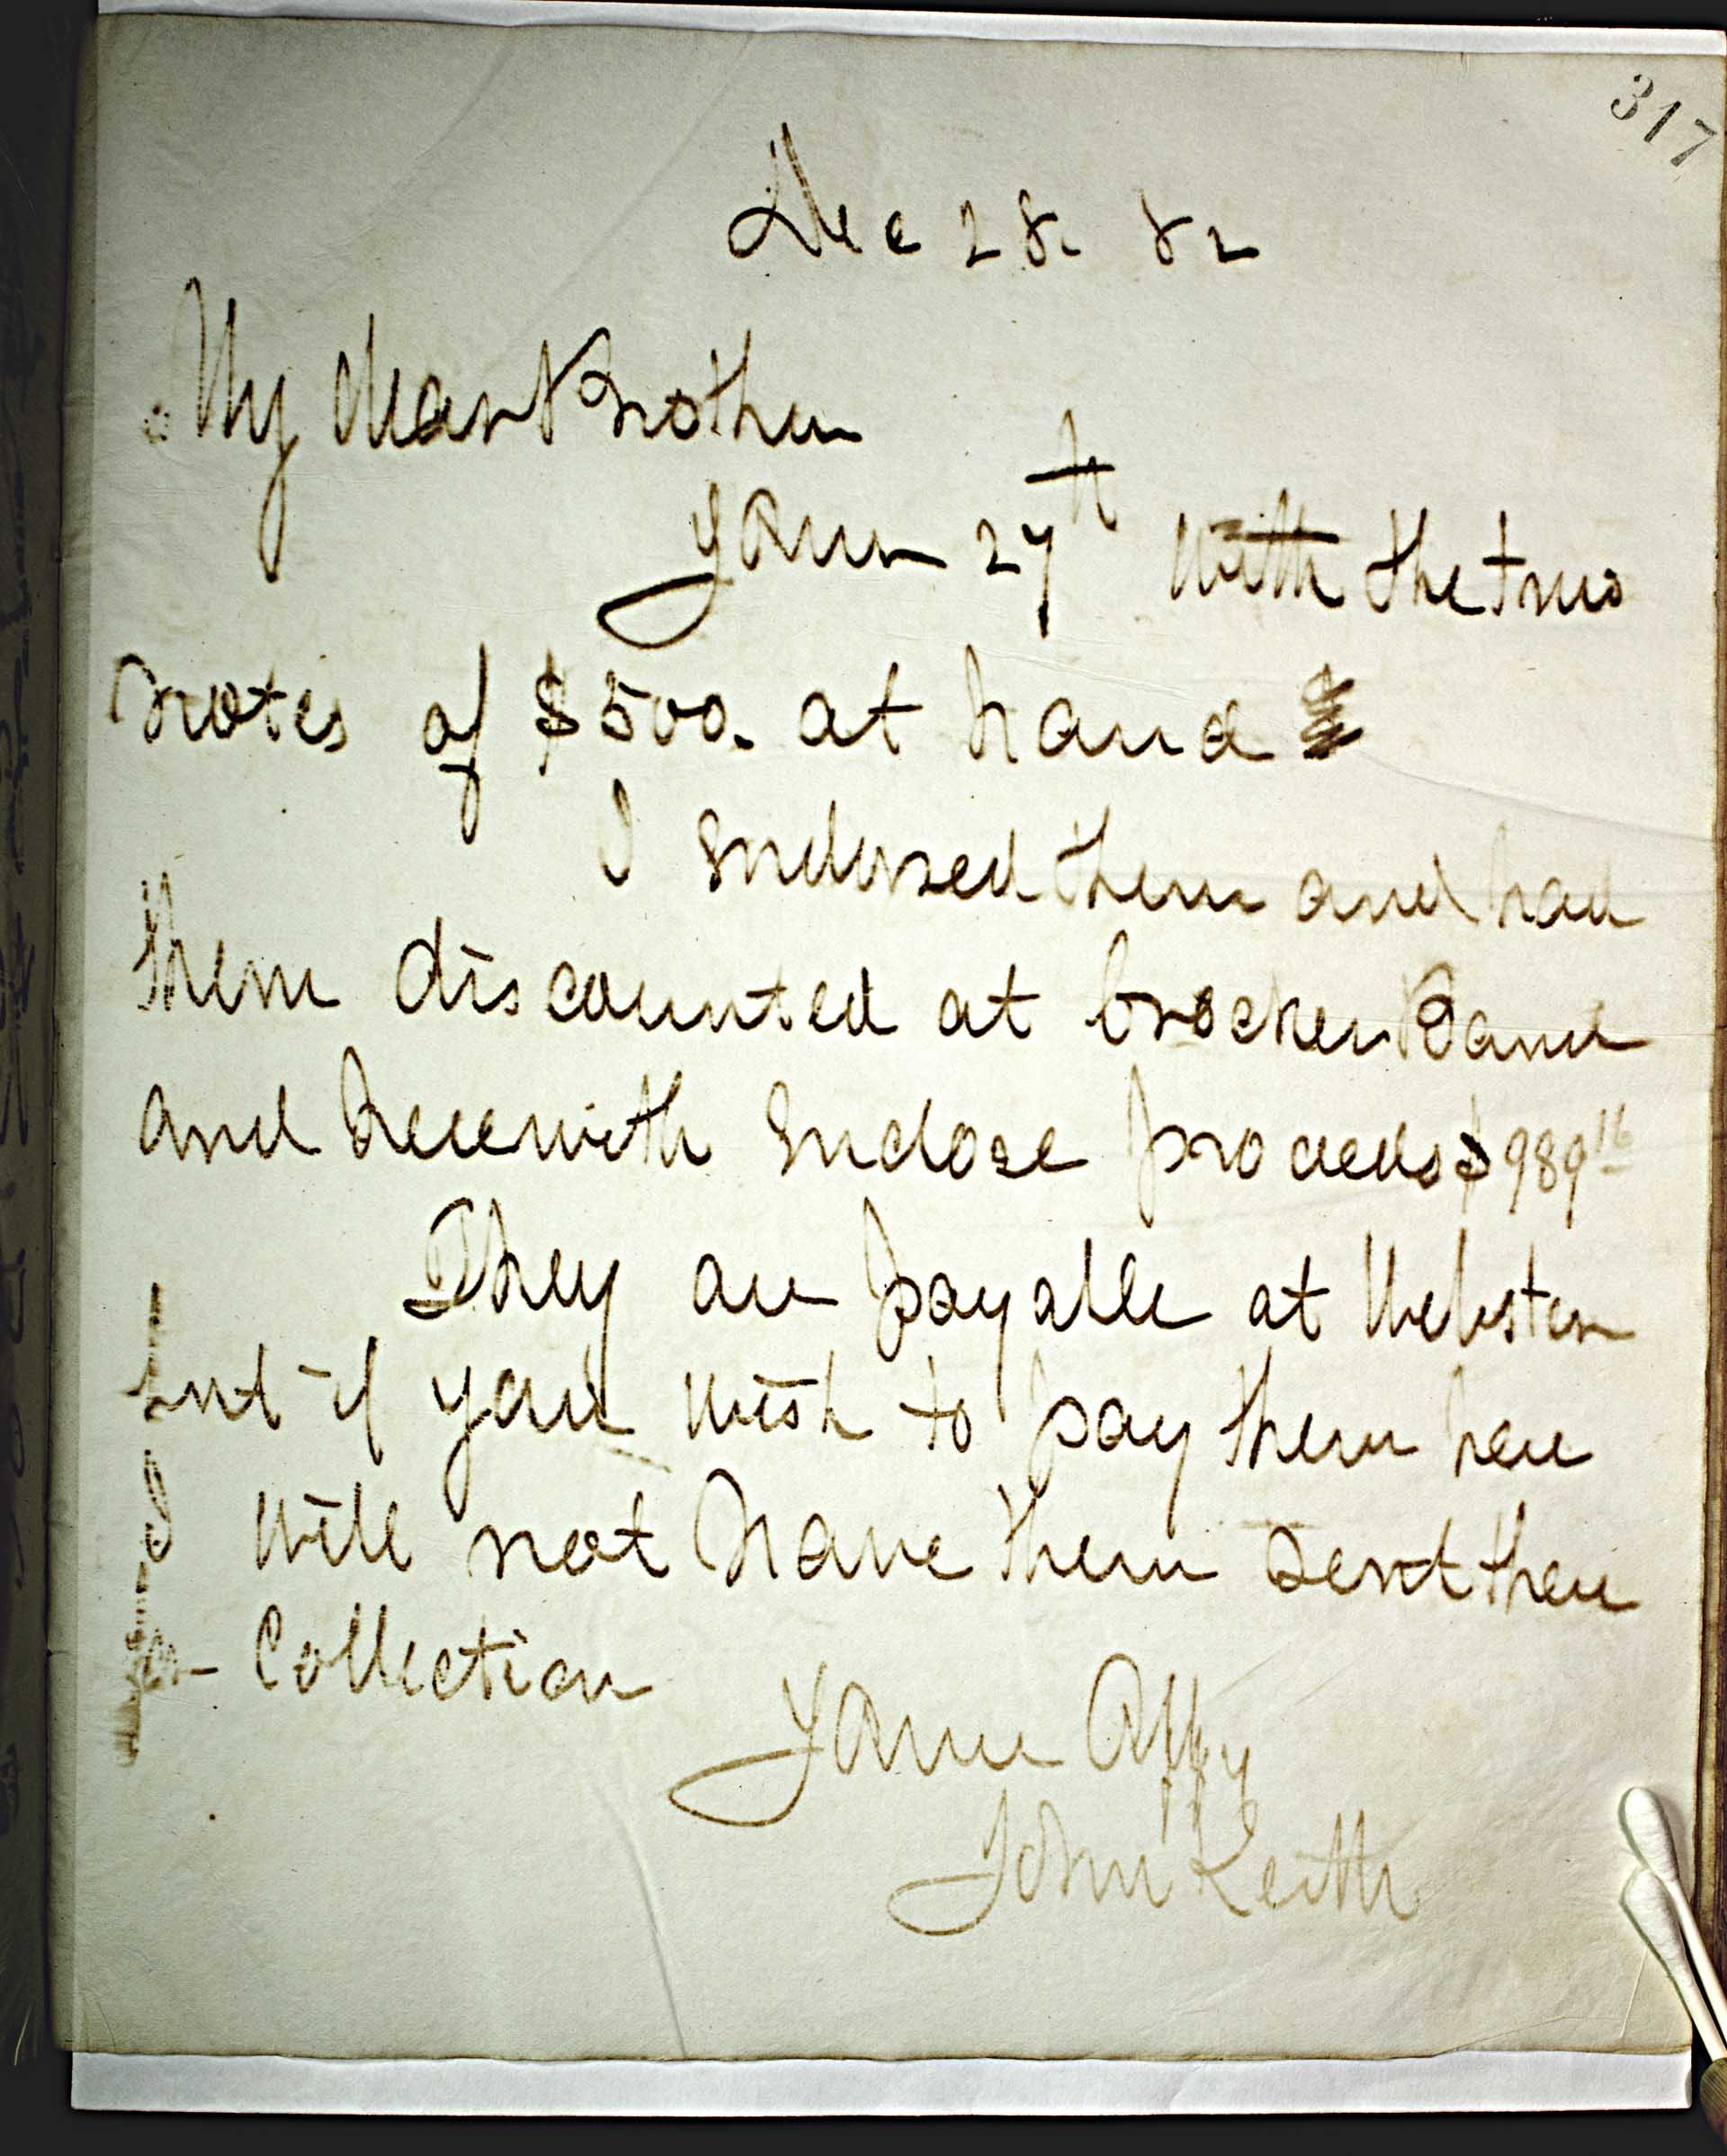 317
Dec 28. 82
My dear Brother
Your 27th with the two
notes of $500. at hand
I endorsed them and had
them discounted at Crocker Bank
and herewith enclose proceeds $989 16
They are payable at Webster
but if you wish to pay them here
I will not have them sent there
for Collection
Your Affy
John Keith